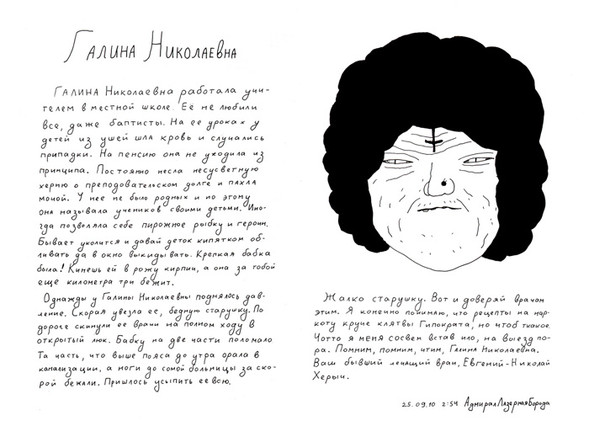 Галина Николаевна
Галина Николаевна работала учи-
телем в местной школе. Её не любили
все, даже баптисты. На ее уроках у
детей из ушей шла кровь и случались
припадки. На пенсию она не уходила из
принципа. Постоянно несла несусветную
херню о преподовательском долге и пахла
мочой. У нее не было родных и по этому
она называла учеников своими детьми. Ино-
гда позволяла себе пирожное рыбку и героин.
Бывает уколится и давай деток кипятком об-
ливать да в окно выкидывать. Крепкая бабка
была! Кинешь ей в рожу кирпич, а она за тобой
ещё километра три бежит.
Однажды у Галины Николаевны поднялось дав-
ление. Скорая увезла ее, бедную старушку. По
дороге скинули ее врачи на полном ходу в
открытый люк. Бабку на две части поломало
Та часть, что выше пояса до утра орала в
канализации, а ноги до самой больницы за ско-
рой бежали. Пришлось усыпить ее всю.
Жалко старушку. Вот и доверяй врачам
этим. Я конечно понимаю, что рецепты на нар-
коту круче клятвы Гипократа, но чтоб такое.
Чотто я меня совсем встав ило, на выезд по-
ра. Помним, помним, чтим, Галина Николаевна.
Ваш бывший лечащий врач, Евгений-Николай
Херыч.
25.09.10 2:54 АдмиралЛазернаяБорода